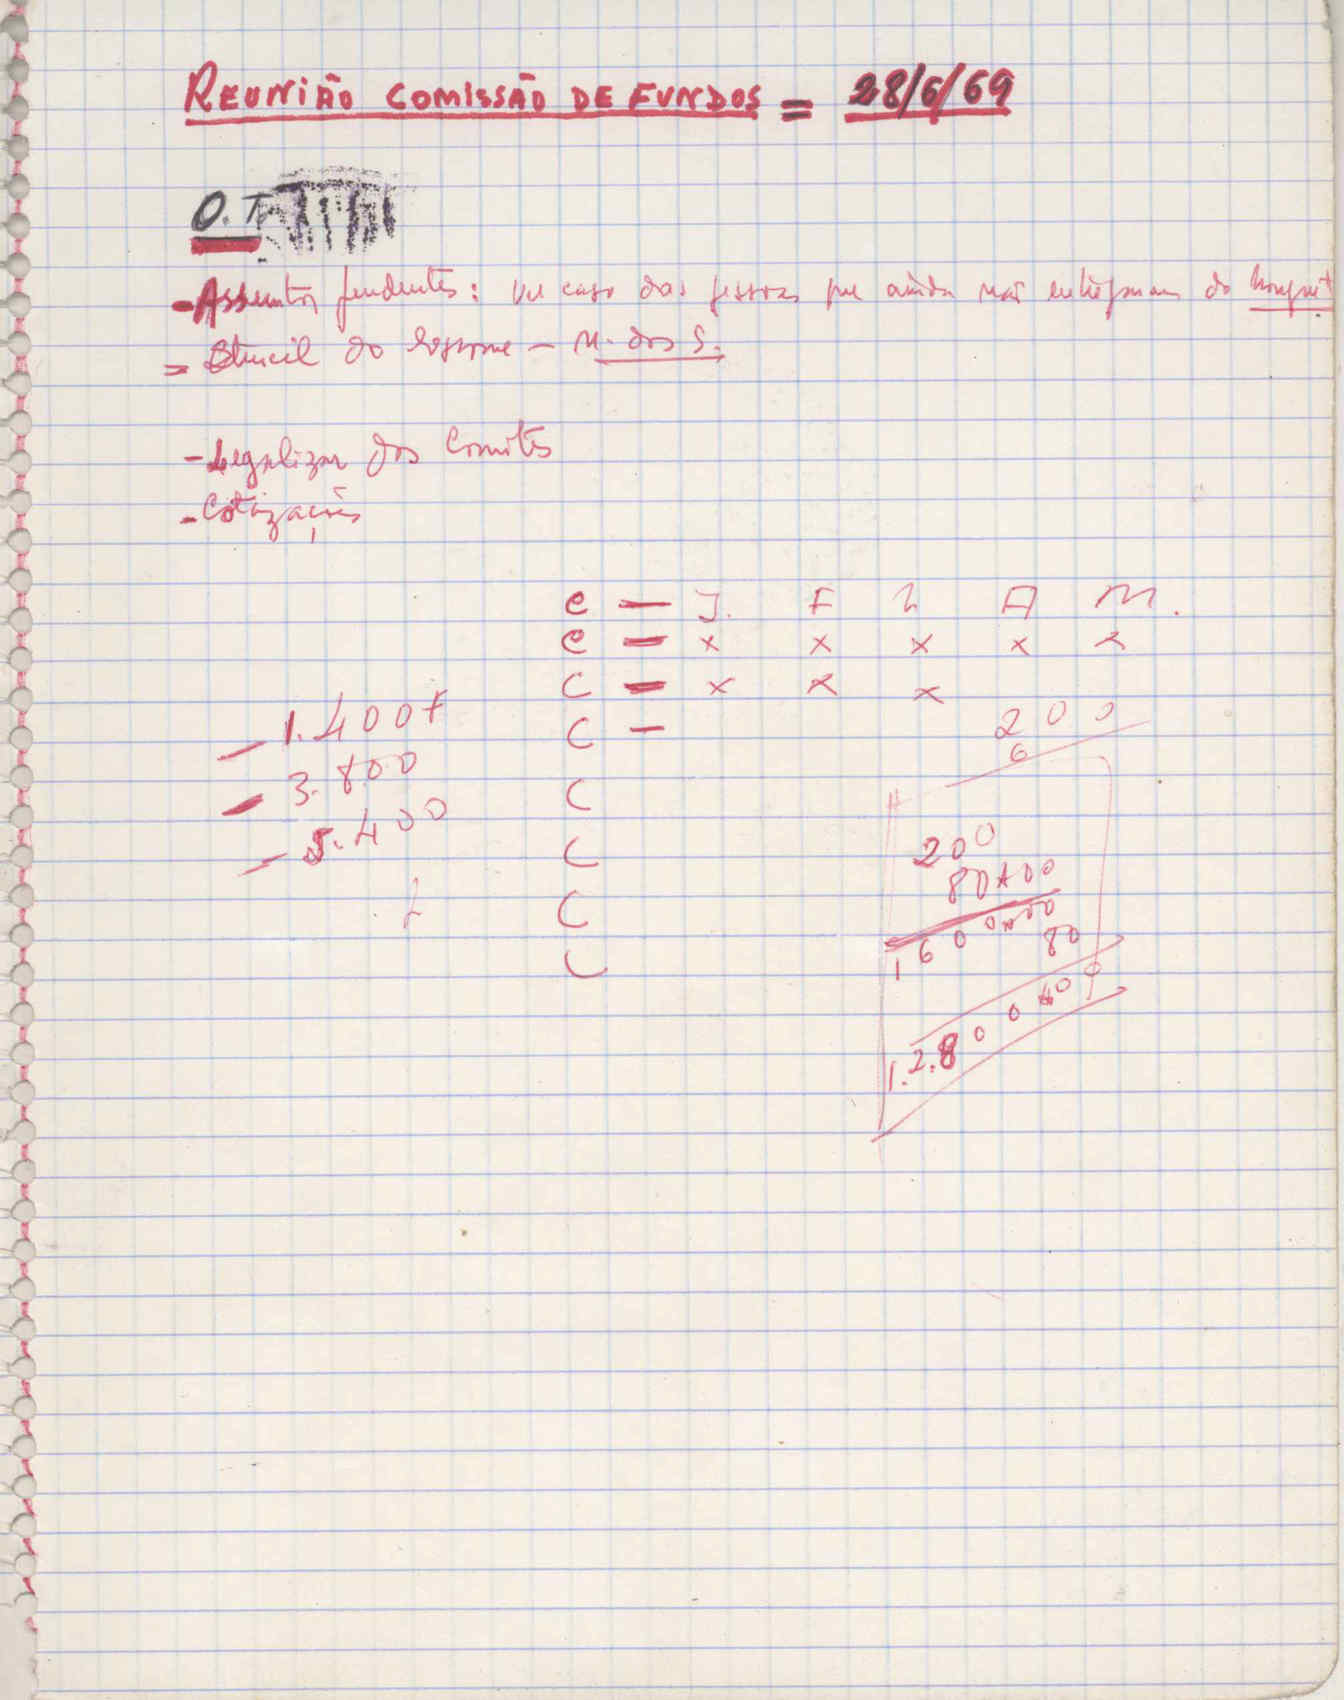 REUNIÃO COMISSÃO DE FUNDOS = 28/6/69
O.T.
- Assuntos pendentes: ver caso das pessoas que ainda não
= Stencil do - M. dos S.
- Legalizar dos Comités
- Cotizações
C — J. F M A M.
C — x x x x x
C — x x x
- 1.400F
C —
200
6
- 3.800
C
- 5.400
C
200
80
C
1600
80
C
1.2.800